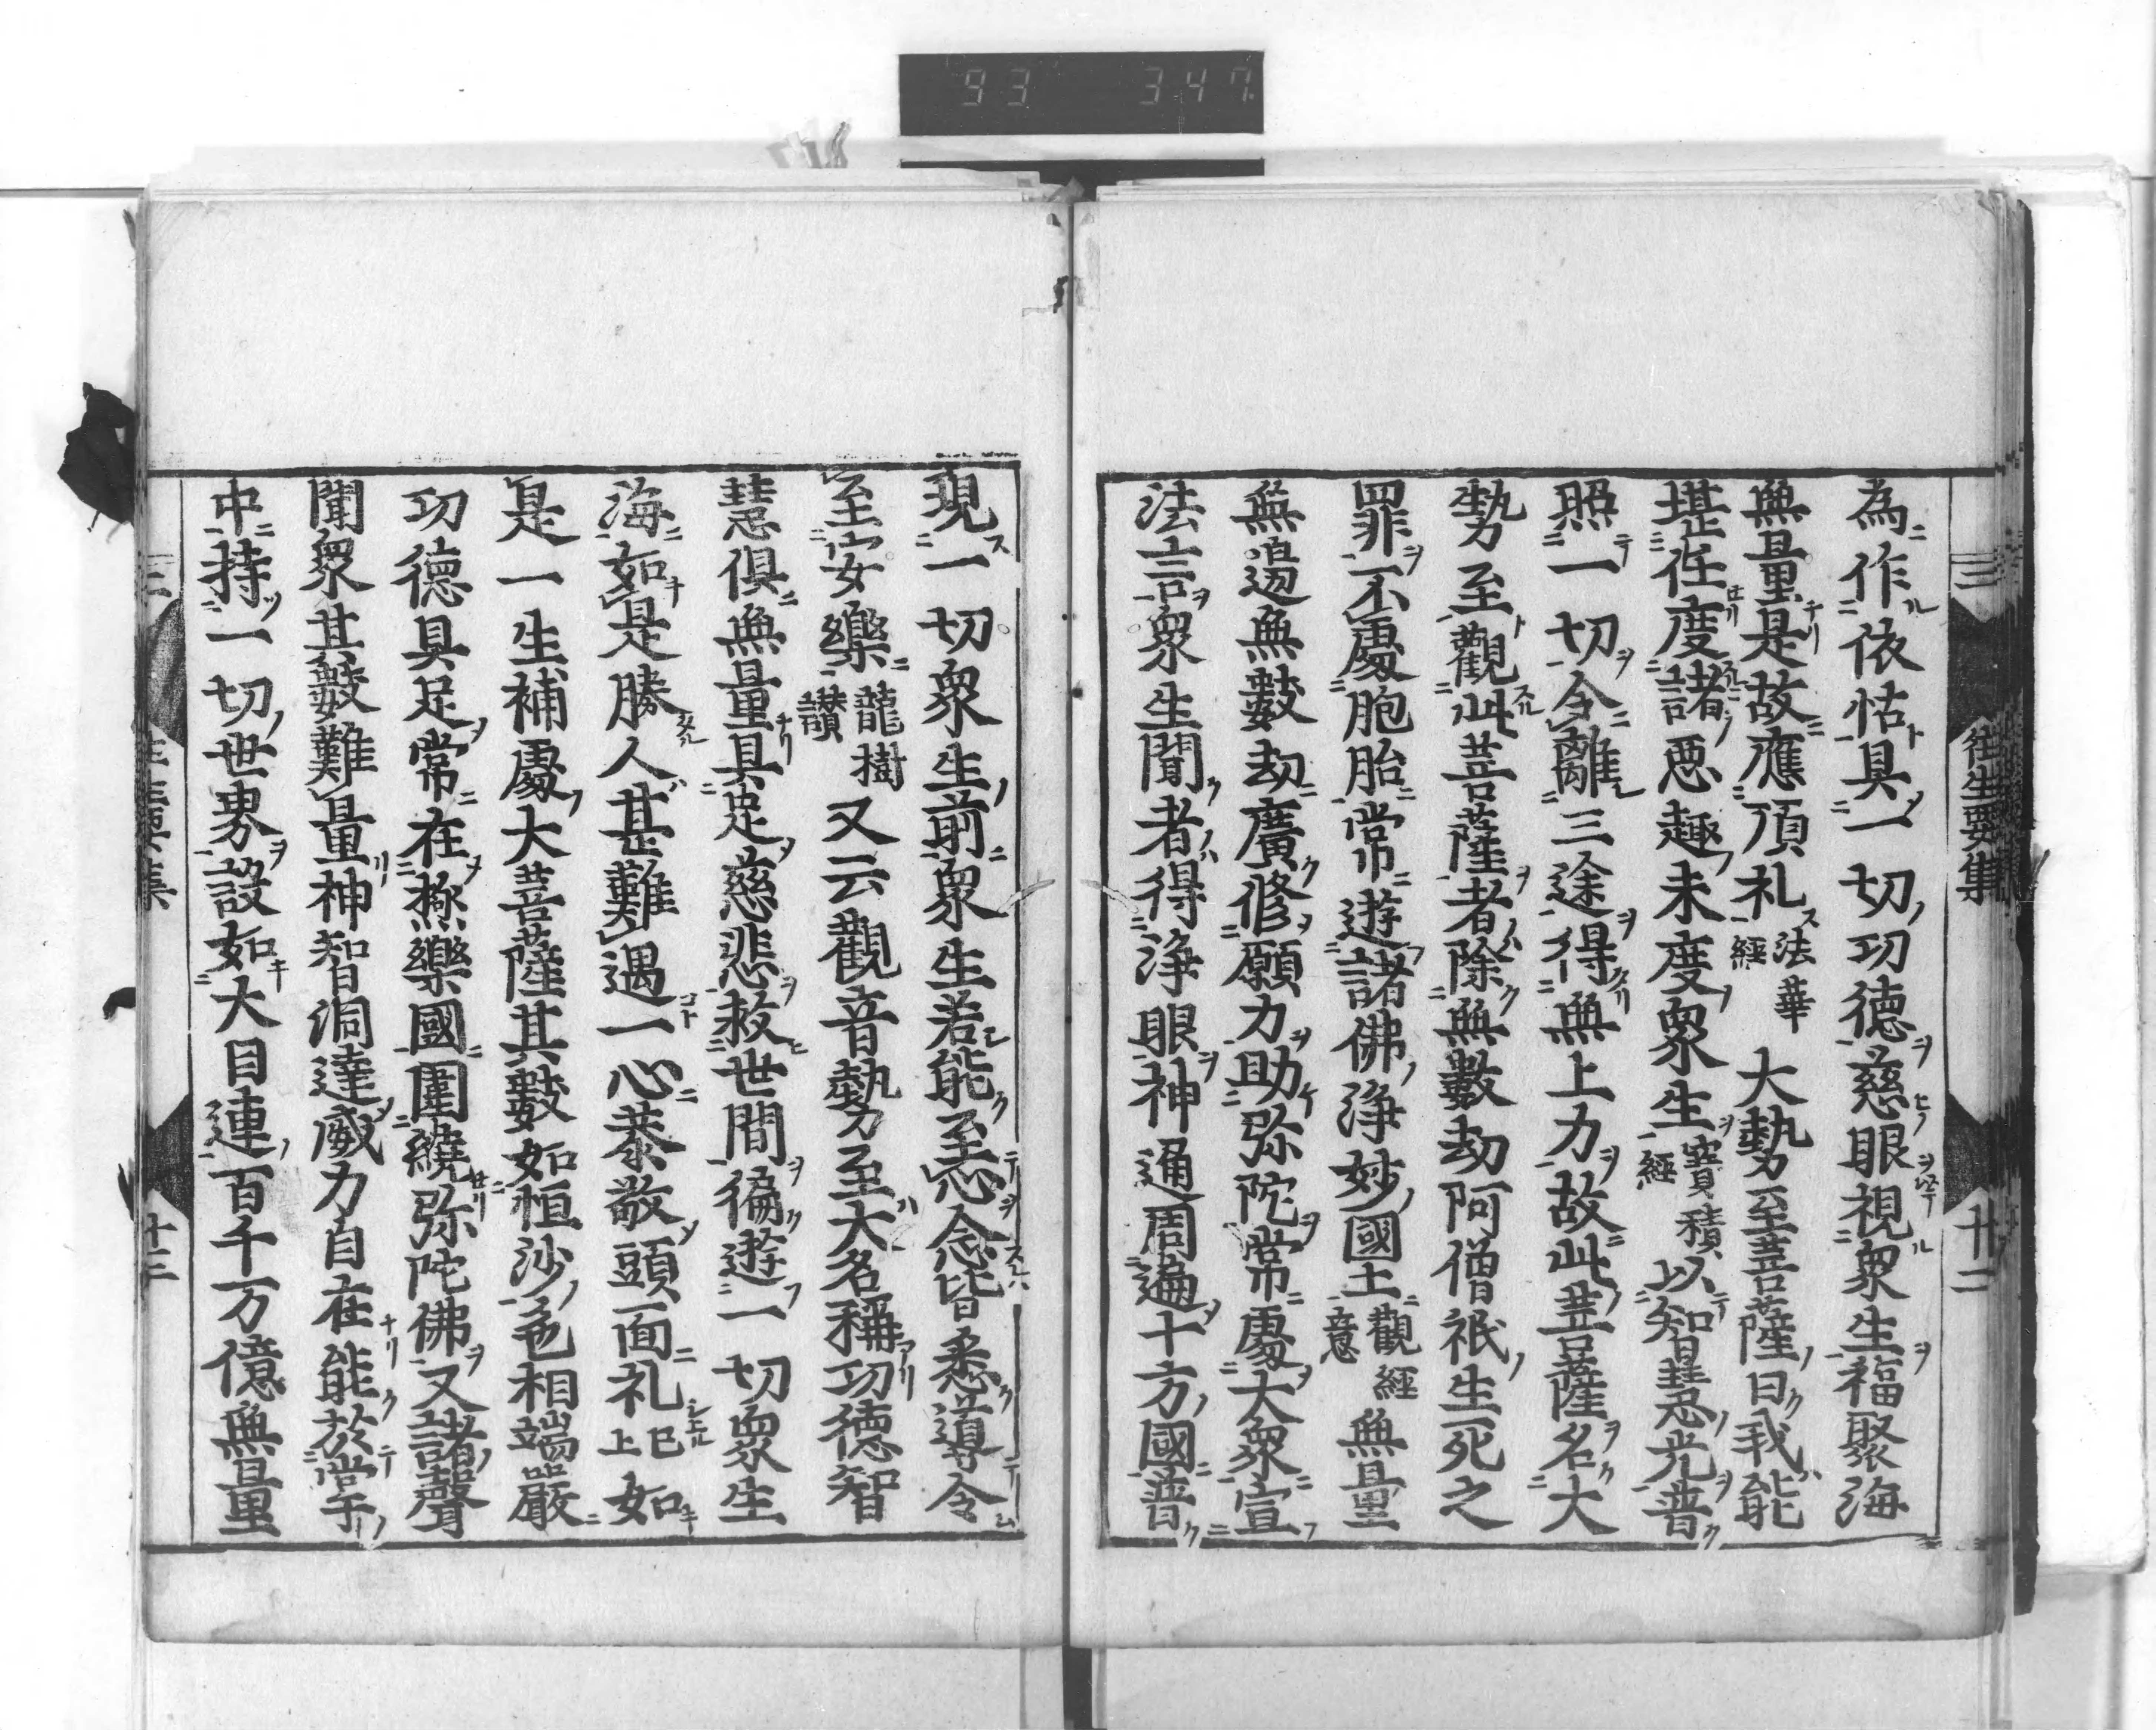 93 347
往生要集
三
廿二
為作依怙具一切功德慈眼視衆生福聚海
無量是故應頂礼法華經大勢至菩薩曰我能
堪任度諸惡趣未度衆生寶積經以智慧光普
照一切令離三途得無上力故此菩薩名大
勢至觀此菩薩者除無數劫阿僧祇生死之
罪不處胞胎常遊諸佛淨妙國土觀經意無量
無邊無數劫廣修願力助弥陀常處大衆宣
法言衆生聞者得淨眼神通周遍十方國普
現一切衆生前衆生若能至心念皆悉導令
至安樂龍樹讃又云觀音勢至大名稱功德智
慧俱無量具足慈悲救世間徧遊一切衆生
海如是勝人甚難遇一心恭敬頭面礼已上如
是一生補處大菩薩其數如恒沙色相端嚴
功德具足常在極樂國圍繞弥陀佛又諸聲
聞衆其數難量神智洞達威力自在能於掌
中持一切世界設如大目連百千万億無量